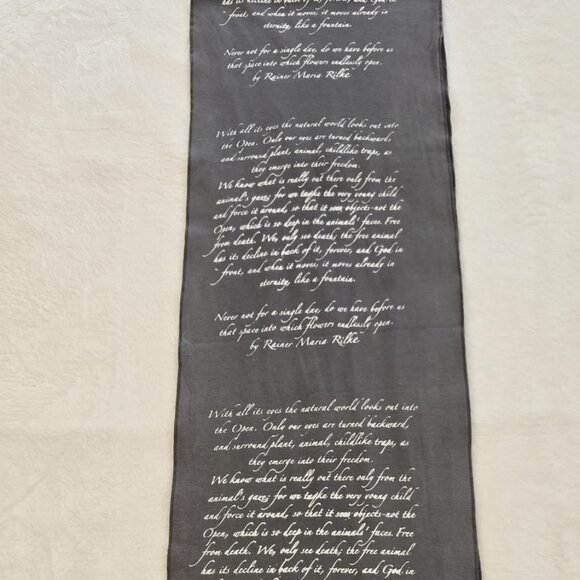 its decline in back of it, forever, and God in
front, and when it moves, it moves already in
eternity, like a fountain.
Never not for a single day, do we have before us
that space into which flowers endlessly open.
by Rainer Maria Rilke
With all its eyes the natural world looks out into
the Open. Only our eyes are turned backward,
and surround plant, animal, childlike traps, as
they emerge into their freedom.
We know what is really out there only from the
animal's gaze; for we take the very young child
and force it around, so that it sees objects-not the
Open, which is so deep in the animals' faces. Free
from death. We, only see death; the free animal
has its decline in back of it, forever, and God in
front, and when it moves, it moves already in
eternity, like a fountain.
Never not for a single day, do we have before us
that space into which flowers endlessly open.
by Rainer Maria Rilke
With all its eyes the natural world looks out into
the Open. Only our eyes are turned backward,
and surround plant, animal, childlike traps, as
they emerge into their freedom.
We know what is really out there only from the
animal's gaze; for we take the very young child
and force it around, so that it sees objects-not the
Open, which is so deep in the animals' faces. Free
from death. We, only see death; the free animal
has its decline in back of it, forever, and God in